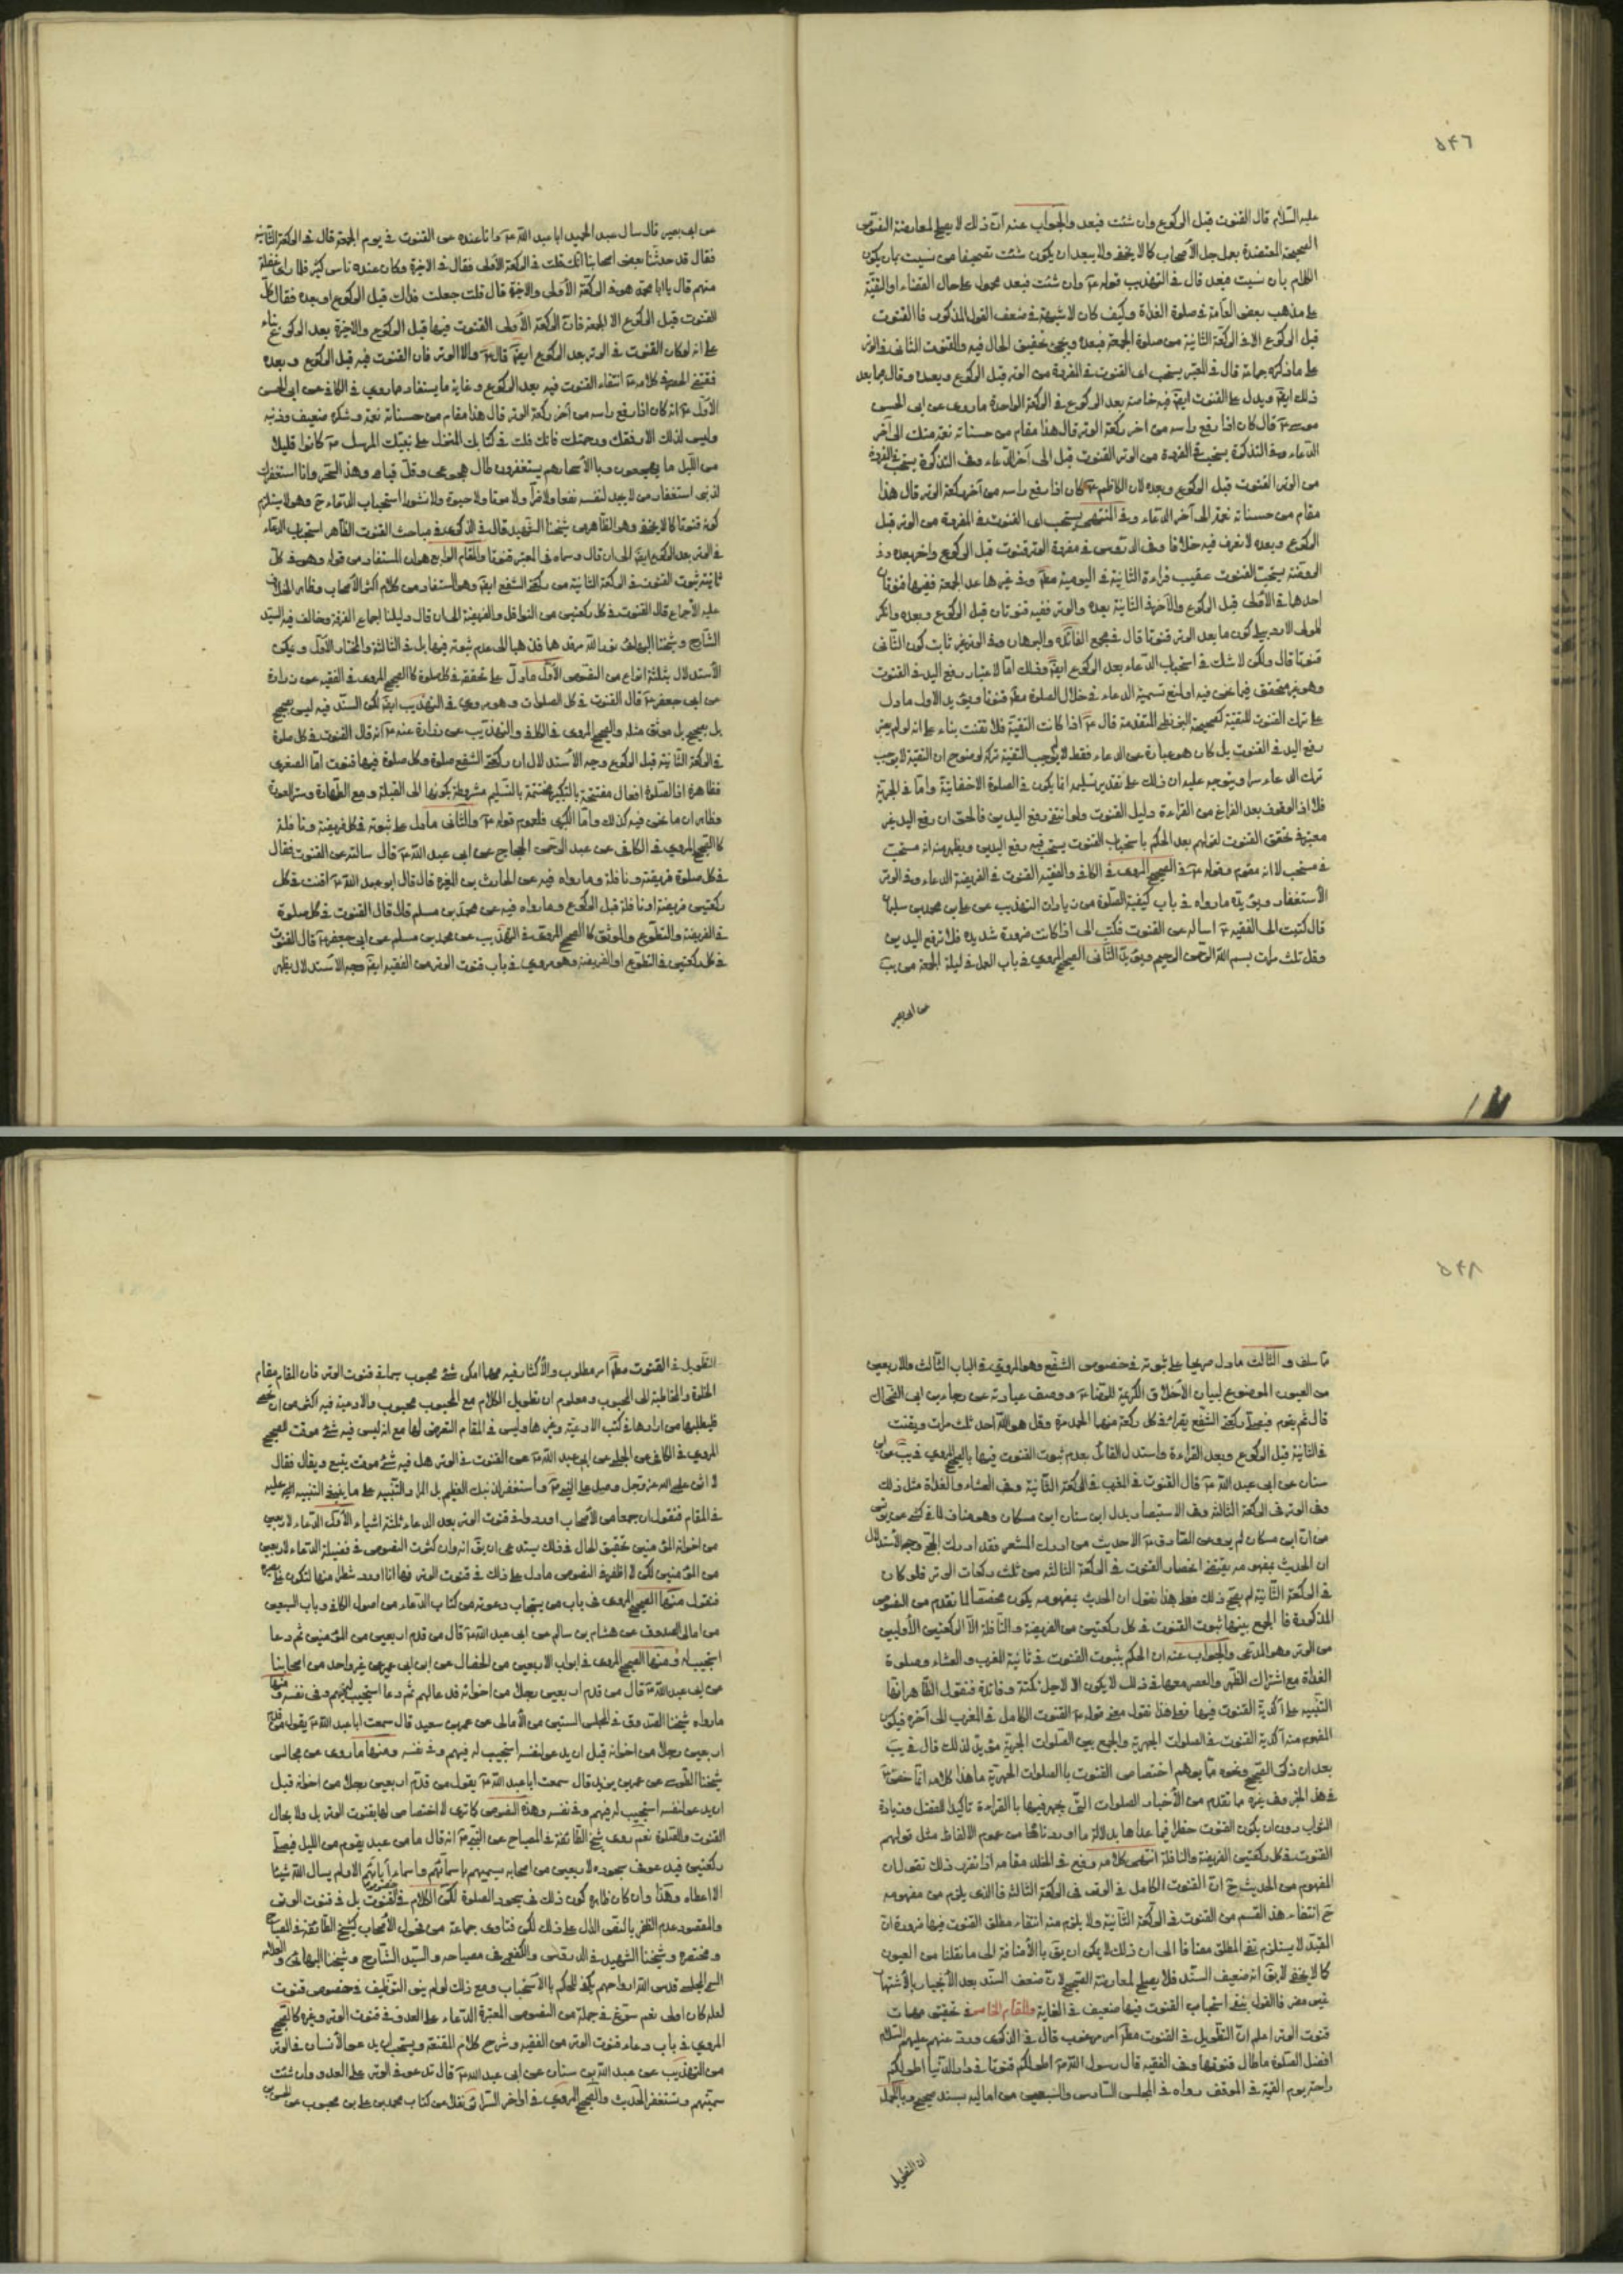 ٥٤٦
عليه السلام قال القنوت قبل الركوع وان شئت فبعد والجواب عنه ان ذلك لا يصلح لمعارضة النصوص
الصحيحة المعتضدة بعمل جل الأصحاب كما لا يخفى ولا يبعد ان يكون شئت تصحيفا من نسيت بان يكون
الكلام بان نسيت فبعد قال في التهذيب قوله ع وان شئت فبعد محمول على حال القضاء او التقية
على مذهب بعض العامة في صلوة الغداة وكيف كان لا شبهة في ضعف القول المذكور فالقنوت
قبل الركوع الا في الركعة الثانية من صلوة الجمعة فبعده ويجئ تحقيق الحال فيه والقنوت الثاني في الوتر
على ما ذكره جماعة قال في المعتبر يستحب ان القنوت في المفردة من الوتر قبل الركوع وبعده وقال فيما بعد
ذلك ايضا ويدل على القنوت ايضا فيه خاصة بعد الركوع في الركعة الواحدة ما روي عن ابي الحسن
موسى ع قال كان اذا رفع راسه من اخر ركعة الوتر قال هذا مقام من حسناته نعمة منك الى آخر
الدعاء وفي التذكرة يستحب في المفردة من الوتر القنوت قبل الى آخر الدعاء وفي التذكرة يستحب في المفردة
من الوتر القنوت قبل الركوع وبعده لان الكاظم ع كان اذا رفع راسه من آخر ركعة الوتر قال هذا
مقام من حسناته نعمة الى آخر الدعاء وفي المنتهى يستحب ان القنوت في المفردة من الوتر قبل
الركوع وبعده لا نعرف فيه خلافا وفي الدروس في مفردة الوتر قنوت قبل الركوع واخر بعده وفي
الروضة يستحب القنوت عقيب قراءة الثانية في اليومية مطلقا وفي غيرها عدا الجمعة ففيها قنوتان
احدهما في الأولى قبل الركوع والآخر في الثانية بعده والوتر ففيه قنوتان قبل الركوع وبعده وانكر
المولى الاردبيلي كون ما بعد الوتر قنوتا قال في مجمع الفائدة والبرهان وفي الوتر غير ثابت كون الثاني
قنوتا قال ولكن لا شك في استحباب الدعاء بعد الركوع ايضا وذلك اما لاعتبار رفع اليد في القنوت
وهو غير متحقق فيما نحن فيه او لمنع تسمية الدعاء في خلال الصلوة مطلقا قنوتا ويؤيد الاول ما دل
على ترك القنوت للتقية كصحيحة البزنطي المتقدمة قال ع اذا كانت التقية فلا تقنت بناء على انه لو لم يعتبر
رفع اليد في القنوت بل كان هو عبارة عن الدعاء فقط لا يوجب التقية تركه لوضوح ان التقية لا يوجب
ترك الدعاء سرا ويتوجه عليه ان ذلك على تقدير تسليمه انما يكون في الصلوة الاخفاتية واما في الجهرية
فلا اذ الوقوف بعد الفراغ من القراءة دليل القنوت ولو انتفى رفع اليدين فالحق ان رفع اليد غير
معتبر في تحقق القنوت لقولهم بعد الحكم باستحباب القنوت يستحب فيه رفع اليدين ويظهر منه انه مستحب
في مستحب لا انه مقوم وقوله ع في الصحيح المروي في الكافي والفقيه القنوت في الفريضة الدعاء وفي الوتر
الأستغفار ويؤيده ما رواه في باب كيفية الصلوة من زيادات التهذيب عن علي بن محمد بن سليمان
قال كتبت الى الفقيه ع اساله عن القنوت فكتب الى اذا كانت ضرورة شديدة فلا ترفع اليدين
وقل ثلث مرات بسم الله الرحمن الرحيم ويؤيد الثاني الصحيح المروي في باب العمل في ليلة الجمعة من يب
عن ابي بصير
عن ابي بصير قال سال عبد الحميد ابا عبد الله ع وانا عنده عن القنوت في يوم الجمعة قال في الركعة الثانية
فقال قد حدثنا بعض اصحابنا انك قلت في الركعة الأولى فقال في الاخيرة وكان عنده ناس كثير فلما راى غفلة
منهم قال يا ابا محمد هو في الركعة الأولى والاخيرة قال قلت جعلت فداك قبل الركوع او بعده فقال كل
القنوت قبل الركوع الا الجمعة فان الركعة الأولى القنوت فيها قبل الركوع والاخيرة بعد الركوع بناء
على انه لو كان القنوت في الوتر بعد الركوع ايضا قال ع والا الوتر فان القنوت فيه قبل الركوع وبعده
فمقتضى الحصر في كلامه ع انتفاء القنوت فيه بعد الركوع وغاية ما يستفاد مما روي في الكافي عن ابي الحسن
الأول ع انه كان اذا رفع راسه من آخر ركعة الوتر قال هذا مقام من حسناته نعمة وشكره ضعيف وذنبه
وليس لذلك الا رفقك ورحمتك فانك قلت في كتابك المنزل على نبيك المرسل ص كانوا قليلا
من الليل ما يهجعون وبالأسحار هم يستغفرون طال هجوعى وقل قيامى وهذا السحر وانا استغفرك
لذنبى استغفار من لا يجد لنفسه نفعا ولا ضرا ولا موتا ولا حيوة ولا نشورا استحباب الدعاء ح وهو لا يستلزم
كونه قنوتا كما لا يخفى وهو الظاهر من شيخنا الشهيد قال في الذكرى في مباحث القنوت الظاهر استحباب الدعاء
في الوتر بعد الركوع ايضا الى ان قال وسماه في المعتبر قنوتا والمقام الرابع هو ان المستفاد من قوله وهو في كل
ثانية ثبوت القنوت في الركعة الثانية من ركعتي الشفع ايضا وهو المستفاد من كلام اكثر الأصحاب وظاهر الخلاف
عليه الأجماع قال القنوت في كل ركعتين من النوافل والفريضة الى ان قال دليلنا اجماع الفرقة وخالف فيه السيد
الشارح وشيخنا البهائى نور الله مرقدهما فذهبا الى عدم ثبوته فيها بل في الثالثة والمختار الأول ويمكن
الأستدلال بثلثة انواع من النصوص الأول ما دل على تحققه في كل صلوة كالصحيح المروي في الفقيه عن زرارة
عن ابي جعفر ع قال القنوت في كل الصلوات وهو مروي في التهذيب ايضا لكن السند فيه ليس بصحيح
بل موثق مثله والصحيح المروي في الكافي والتهذيب عن زرارة عنه ع انه قال القنوت في كل صلوة
في الركعة الثانية قبل الركوع وجه الأستدلال ان ركعتي الشفع صلوة وكل صلوة فيها قنوت اما الصغرى
فظاهرة اذ الصلوة افعال مفتتحة بالتكبير مختتمة بالتسليم مشروطة بكونها الى القبلة ومع الطهارة وستر العورة
وظاهر ان ما نحن فيه كذلك واما الكبرى فلعموم قوله ع والثاني ما دل على ثبوته في كل فريضة ونافلة
كالصحيح المروي في الكافي عن عبد الرحمن الحجاج عن ابي عبد الله ع قال سالته عن القنوت فقال
في كل صلوة فريضة ونافلة وما رواه فيه عن الحارث بن المغيرة قال قال ابو عبد الله ع اقنت في كل
ركعتين فريضة او نافلة قبل الركوع وما رواه فيه عن محمد بن مسلم قال قال القنوت في كل صلوة
في الفريضة والتطوع والموثق كالصحيح المروي في التهذيب عن محمد بن مسلم عن ابي جعفر ع قال القنوت
في كل ركعتين في التطوع او الفريضة وهو مروي في باب قنوت الوتر من الفقيه ايضا وجه الأستدلال يظهر
٥٤٨
مما سلف والثالث ما دل صريحا على ثبوته في خصوص الشفع وهو المروي في الباب الثالث والاربعين
من العيون الموضوع لبيان الأخلاق الكريمة للرضا ع ووصف عبادته عن رجاء بن ابي الضحاك
قال ثم يقوم فيصلي ركعتي الشفع يقرء في كل ركعة منها الحمد مرة وقل هو الله احد ثلث مرات ويقنت
في الثانية قبل الركوع وبعد القراءة واستدل القائل بعدم ثبوت القنوت فيها بالصحيح المروي في يب عن ابن
سنان عن ابي عبد الله ع قال القنوت في المغرب في الركعة الثانية وفي العشاء والغداة مثل ذلك
وفي الوتر في الركعة الثالثة وفي الاستبصار بدل ابن سنان ابن مسكان وهو مناف لما في كش عن يونس
من ان ابن مسكان لم يرو عن الصادق ع الا حديث من ادرك المشعر فقد ادرك الحج وجه الأستدلال
ان الحديث بمفهومه يقتضي انحصار القنوت في الركعة الثالثة من ثلث ركعات الوتر فلو كان
في الركعة الثانية لم يصح ذلك فعلى هذا نقول ان الحديث بمفهومه يكون مخصصا لما تقدم من النصوص
المذكورة فالجمع بينها ثبوت القنوت في كل ركعتين من الفريضة والنافلة الا الركعتين الأوليين
من الوتر وهو المدعى والجواب عنه ان الحكم بثبوت القنوت في ثانية المغرب والعشاء وصلوة
الغداة مع اشتراك الظهر والعصر معها في ذلك لا يكون الا لاجل نكتة وفائدة فنقول الظاهر انها
التنبيه على آكدية القنوت فيها فعلى هذا نقول معنى قوله ع القنوت الكامل في المغرب الى آخره فيكون
المفهوم منه آكدية القنوت في الصلوات الجهرية والجمع بين الصلوات الجهرية مؤيد لذلك قال في يب
بعد ان ذكر الصحيح ونحوه مما يوهم اختصاص القنوت بالصلوات الجهرية ما هذا كلامه انما خص ع
في هذا الخبر وفي غيره مما تقدم من الأخبار الصلوات التي يجهر فيها بالقراءة تاكيدا للفضل وزيادة
الثواب دون ان يكون القنوت حظرا فيما عداها بدلالة ما اوردناه من عموم الالفاظ مثل قولهم
القنوت في كل ركعتين الفريضة والنافلة انتهى كلامه رفع في الخلد مقامه اذا تقرر ذلك نقول ان
المفهوم من الحديث ح ان القنوت الكامل في الوتر في الركعة الثالثة فالذي يلزم من مفهومه
ح انتفاء هذا القسم من القنوت في الركعة الثانية ولا يلزم منه انتفاء مطلق القنوت فيها ضرورة ان
المقيد لا يستلزم نفي المطلق مضافا الى ان ذلك لا يمكن ان يق بالأضافة الى ما نقلنا من العيون
كما لا يخفى لا يق انه ضعيف السند فلا يصلح لمعارضة الصحيح لان ضعف السند بعد الأنجبار بالأشتهار
غير مضر فالقول بنفي استحباب القنوت فيها ضعيف في الغاية والمقام الخامس في تحقيق مهمات
قنوت الوتر اعلم ان التطويل في القنوت مطلقا امر مرغوب قال في الذكرى ورد عنهم عليهم السلام
افضل الصلوة ما طال قنوتها وفي الفقيه قال رسول الله ص اطولكم قنوتا في دار الدنيا اطولكم
راحة يوم القيمة في الموقف رواه في المجلس السادس والسبعين من اماليه بسند صحيح وبالجملة
ان التطويل
التطويل في القنوت مطلقا امر مطلوب والأكثار فيه مهما امكن شئ محبوب سيما في قنوت الوتر فان المقام مقام
الخلوة والمخاطبة الى المحبوب ومعلوم ان تطويل الكلام مع المحبوب محبوب والادعية فيه اكثر من ان تحصى
فليطلبها من ارادها في كتب الادعية وغيرها وليس في المقام التعرض لها مع انه ليس فيه شئ موقت للصحيح
المروي في الكافي عن الحلبي عن ابي عبد الله ع عن القنوت في الوتر هل فيه شئ موقت يتبع ويقال فقال
لا اثن على الله عز وجل وصل على النبي ص واستغفر لذنبك العظيم بل المراد التنبيه على ما ينبغي التنبيه عليه
في المقام فنقول ان جمعا من الأصحاب اوردوا في قنوت الوتر بعد الدعاء ثلثة اشياء الأول الدعاء لاربعين
من اخوانه المؤمنين تحقيق الحال في ذلك يستدعى ان يق انه وان كثرت النصوص في فضيلة الدعاء لاربعين
من المؤمنين لكن لا اظفر في النصوص ما دل على ذلك في قنوت الوتر فها انا اورد شطرا منها لتكون على بصيرة
فنقول منها الصحيح المروي في باب من يستجاب دعوته من كتاب الدعاء من اصول الكافي وباب السبعين
من امالى الصدوق عن هشام بن سالم عن ابي عبد الله ع قال من قدم اربعين من المؤمنين ثم دعا
استجيب له ومنها الصحيح المروي في ابواب الاربعين من الخصال عن ابن ابي عمير عن غير واحد من اصحابنا
عن ابي عبد الله ع قال من قدم اربعين رجلا من اخوانه فدعا لهم ثم دعا استجيب له فيهم وفي نفسه ومنها
ما رواه شيخنا الصدوق في المجلس الستين من الأمالى عن عمر بن سعيد قال سمعت ابا عبد الله ع يقول من قدم
اربعين رجلا من اخوانه قبل ان يدعو لنفسه استجيب له فيهم وفي نفسه ومنها ما روى عن مجالس
شيخنا الطوسي عن عمر بن يزيد قال سمعت ابا عبد الله ع يقول من قدم اربعين رجلا من اخوانه قبل
ان يدعو لنفسه استجيب له فيهم وفي نفسه وهذه النصوص كما ترى لا اختصاص لها بقنوت الوتر بل ولا بحال
القنوت والصلوة نعم روى شيخ الطائفة في المصباح عن النبي ص انه قال ما من عبد يقوم من الليل فيصلي
ركعتين فيدعو في سجوده لاربعين من اصحابه يسميهم باسمائهم واسماء آبائهم الا ولم يسال الله شيئا
الا اعطاه وهذا وان كان ظاهره كون ذلك في سجود الصلوة لكن الكلام في خصوص القنوت بل في قنوت الوتر
والمقصود عدم الظفر بالنص الدال على ذلك لكن فتاوى جماعة من فحول الأصحاب كشيخ الطائفة في المصباح
ومختصره وشيخنا الشهيد في الدروس والكفعمي في مصباحه والسيد الشارح وشيخنا البهائى والعلامة
المجلسي قدس الله ارواحهم يكفي للحكم بالأستحباب ومع ذلك لو لم ينو التوظيف في خصوص قنوت
لعله كان اولى نعم سوغ في جملة من النصوص المعتبرة الدعاء على العدو في قنوت الوتر وغيره كالصحيح
المروي في باب دعاء قنوت الوتر من الفقيه وشرح كلام المقنعة ويستحب ان يدعو الأنسان في الوتر
من التهذيب عن عبد الله بن سنان عن ابي عبد الله ع قال تدعو في الوتر على العدو وان شئت
سميتهم وتستغفر الحديث والصحيح المروي في اواخر السرائر نقلا من كتاب محمد بن علي بن محبوب عن الحسين